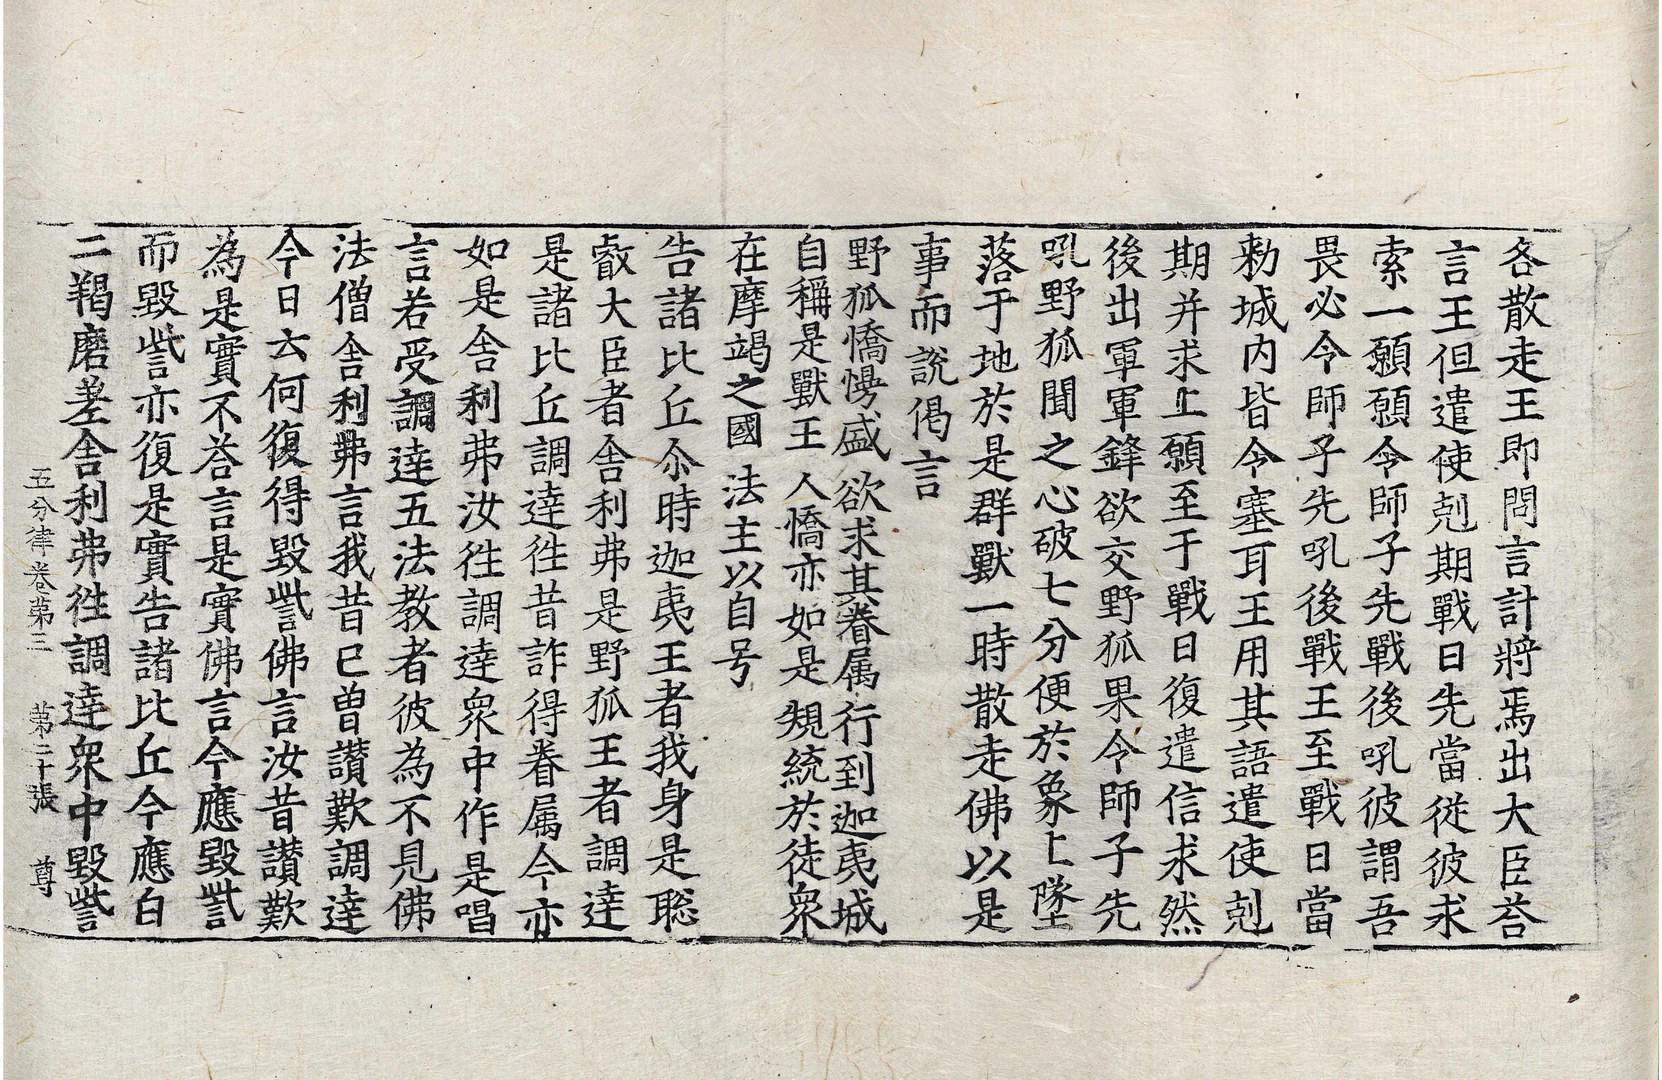 各散走王即問言計將焉出大臣荅
言王但遣使剋期戰日先當從彼求
索一願願令師子先戰後吼彼謂吾
畏必令師子先吼後戰王至戰日當
勑城內皆令塞耳王用其語遣使剋
期并求上願至于戰日復遣信求然
後出軍軍鋒欲交野狐果令師子先
吼野狐聞之心破七分便於象上墜
落于地於是群獸一時散走佛以是
事而說偈言
野狐憍慢盛 欲求其眷属 行到迦夷城
自稱是獸王 人憍亦如是 䂓統於徒衆
在摩竭之國 法主以自号
告諸比丘尒時迦夷王者我身是聡
叡大臣者舎利弗是野狐王者調達
是諸比丘調達徃昔詐得眷属今亦
如是舎利弗汝徃調達衆中作是唱
言若受調達五法教者彼為不見佛
法僧舎利弗言我昔已曽讃歎調達
今日云何復得毀呰佛言汝昔讃歎
為是實不荅言是實佛言今應毀呰
而毀呰亦復是實告諸比丘今應白
二羯磨差舎利弗徃調達衆中毀呰
五分律卷第三 第二十張 尊